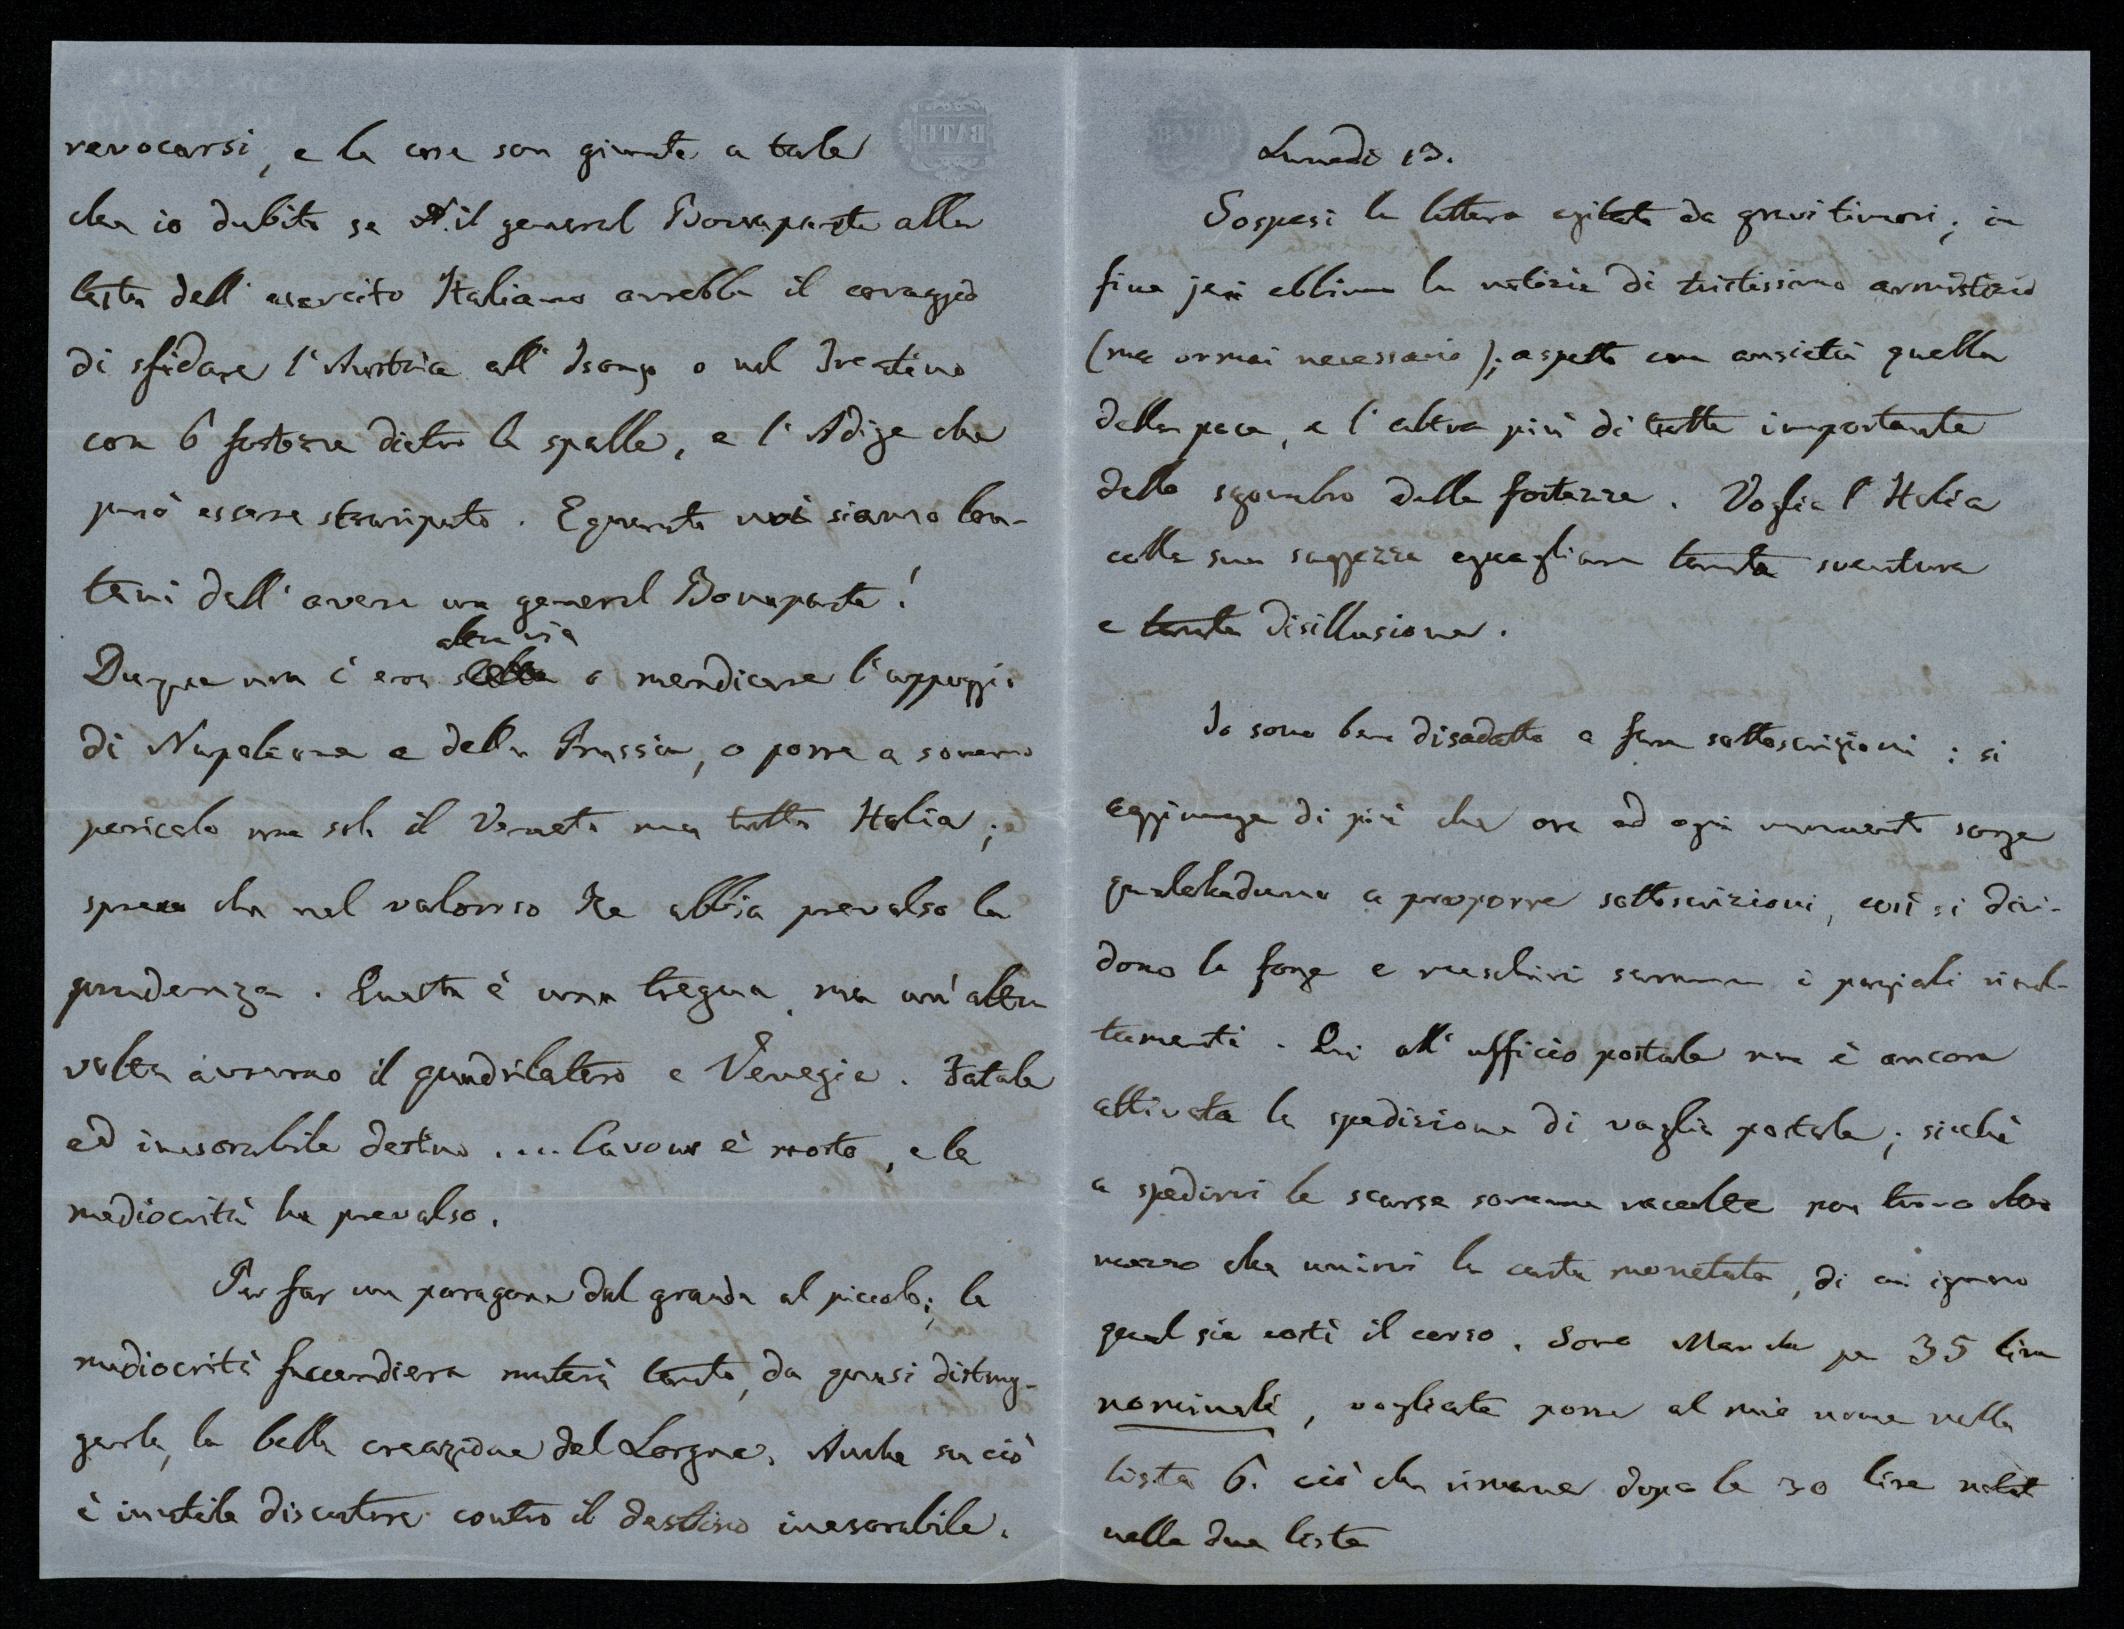 revocarsi, e le cose son giunte a tale
che io dubito se il general Bonaparte alla
testa dell'esercito Italiano avrebbe il coraggio
di sfidare l'Austria all'Isonzo o nel Trentino
con 6 fortezze dietro le spalle, e l'Adige che
può essere straripato. E quanto noi siamo lon-
tani dall'avere un general Bonaparte!
altra via
Dunque non c'era o mendicare l'appoggio
di Napoleone e della Prussia, o porre a sommo
pericolo non solo il Veneto ma tutta Italia;
spero che nel valoroso Re abbia prevalso la
prudenza. Questa è una tregua, ma un'altra
volta avremo il quadrilatero e Venezia. Fatale
ed inesorabile destino .... Cavour è morto, e la
mediocrità ha prevalso.
Per far un paragone dal grande al piccolo; la
mediocrità faccendiera muterà tanto, da quasi distrug-
gerla, la bella creazione del Lorgna. Anche su ciò
è inutile discutere contro il destino inesorabile.
Lunedì 13.
Sospesi la lettera agitato da gravi timori; in
fine jeri ebbimo la notizia di tristissimo armistizio
(ma ormai necessario); aspetto con ansietà quella
della pace, e l'altra più di tutte importante
dello sgombro delle fortezze. Voglia l'Italia
colla sua saggezza eguagliare tanta sventura
e tanta disillusione.
Io sono ben disadatto a fare sottoscrizioni: si
aggiunga di più che ora ad ogni momento sorge
qualcheduno a proporre sottoscrizioni, così si divi-
dono le forze e meschini saranno i parziali risul-
tamenti. Qui all'ufficio postale non è ancora
attivata la spedizione di vaglia postale; sicchè
a spedirvi le scarse somme raccolte non trovo altro
mezzo che unirvi la carta monetata, di cui ignoro
qual sia costì il corso. Sono per 35 lire
nominali, vogliate porre al mio nome nella
lista 6. ciò che rimane dopo le 30 lire
nelle due liste